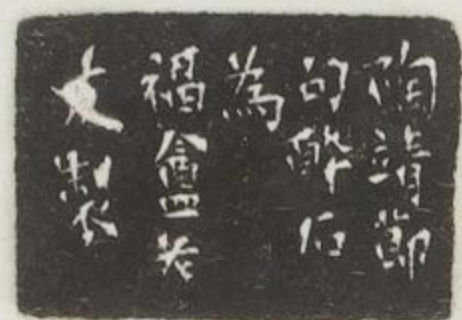 陶靖節
句醉石
為
福盦老
友製